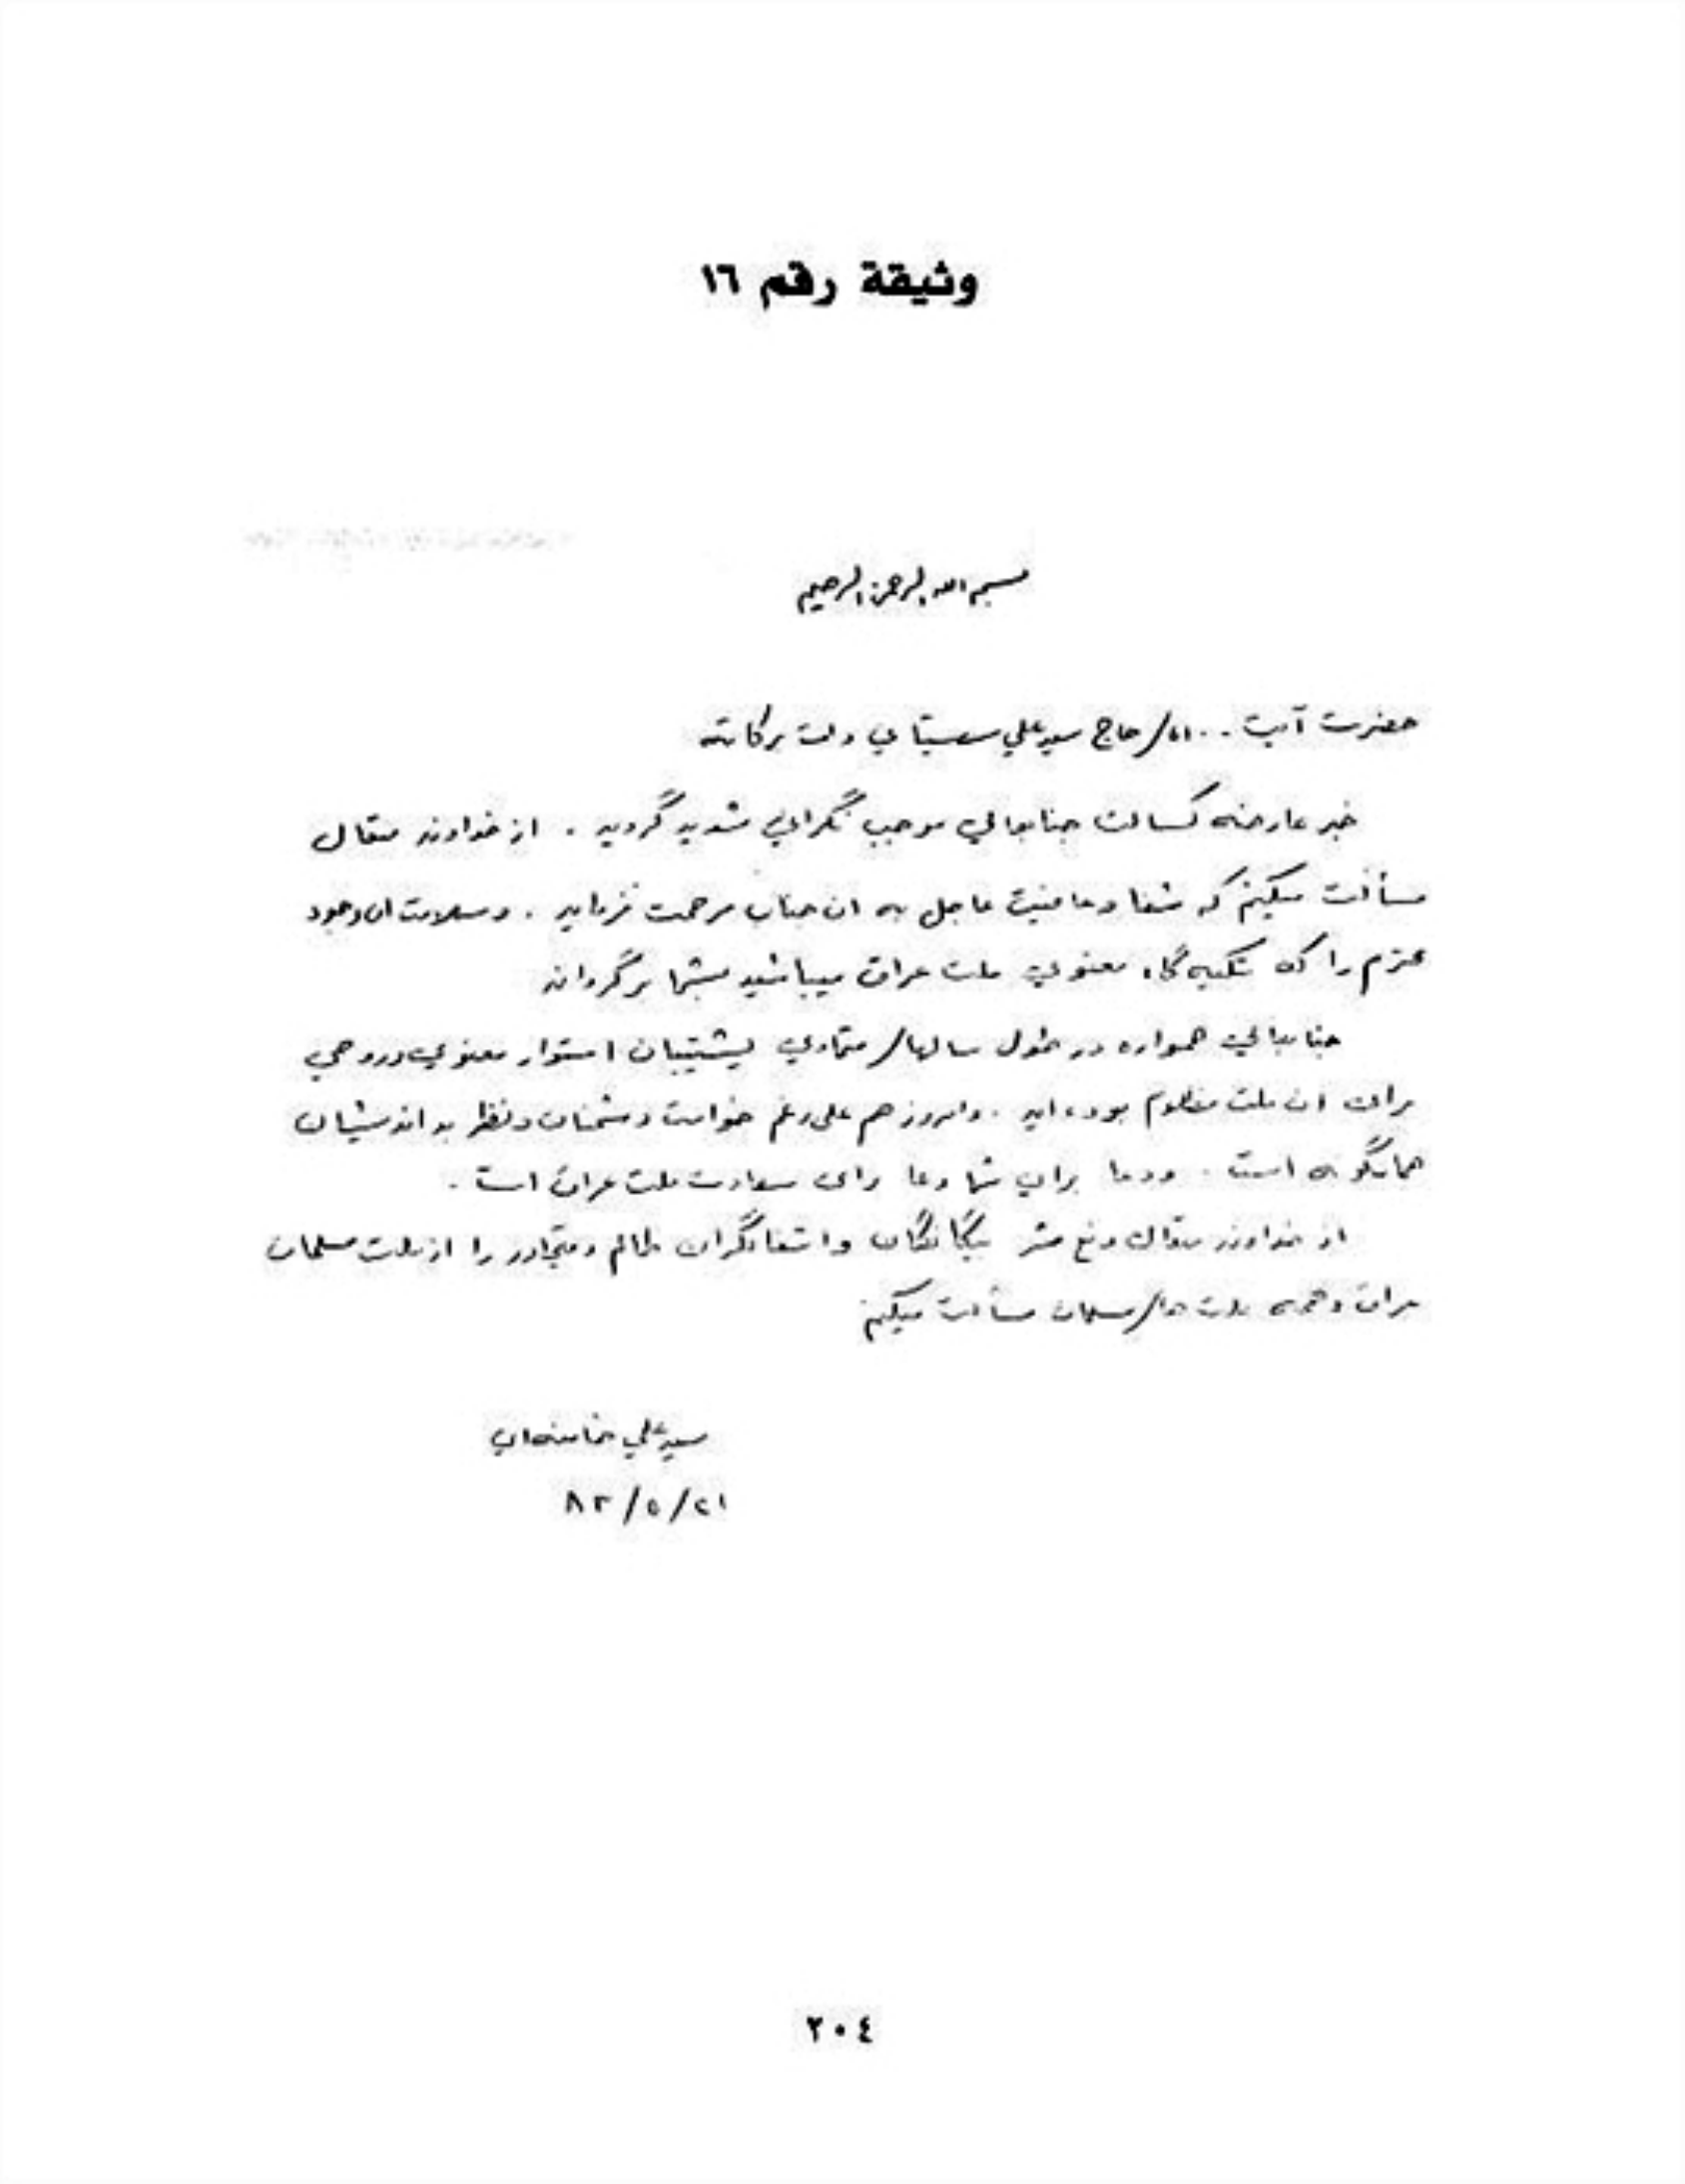 وثيقة رقم ١٦
بسم الله الرحمن الرحيم
حضرت آيت .. العظمى حاج سيد علي سيستاني دامت بركاته
خبر عارضه كسالت جنابعالي موجب نگراني شديد گرديد . از خداوند متعال
مسألت ميكنم كه شفا و عافيت عاجل به ان جناب مرحمت فرمايد . و سلامت ان وجود
محترم را كه تكيه گاه معنوي ملت عراق ميباشيد بشما برگرداند
جنابعالي همواره در طول سالهاى متمادي پشتيبان استوار معنوي و روحي
براى ان ملت مظلوم بوده ايد . و امروز هم على رغم خواست دشمنان و نظر بد انديشان
همانگونه است . و دعا براي شما دعا براى سعادت ملت عراق است .
از خداوند متعال دفع شر بيگانگان و اشغالگران ظالم و متجاوز را از ملت مسلمان
عراق و همه ملت هاى مسلمان مسألت ميكنم
سيد علي خامنه اي
٢١/٥/٨٣
٢٠٤